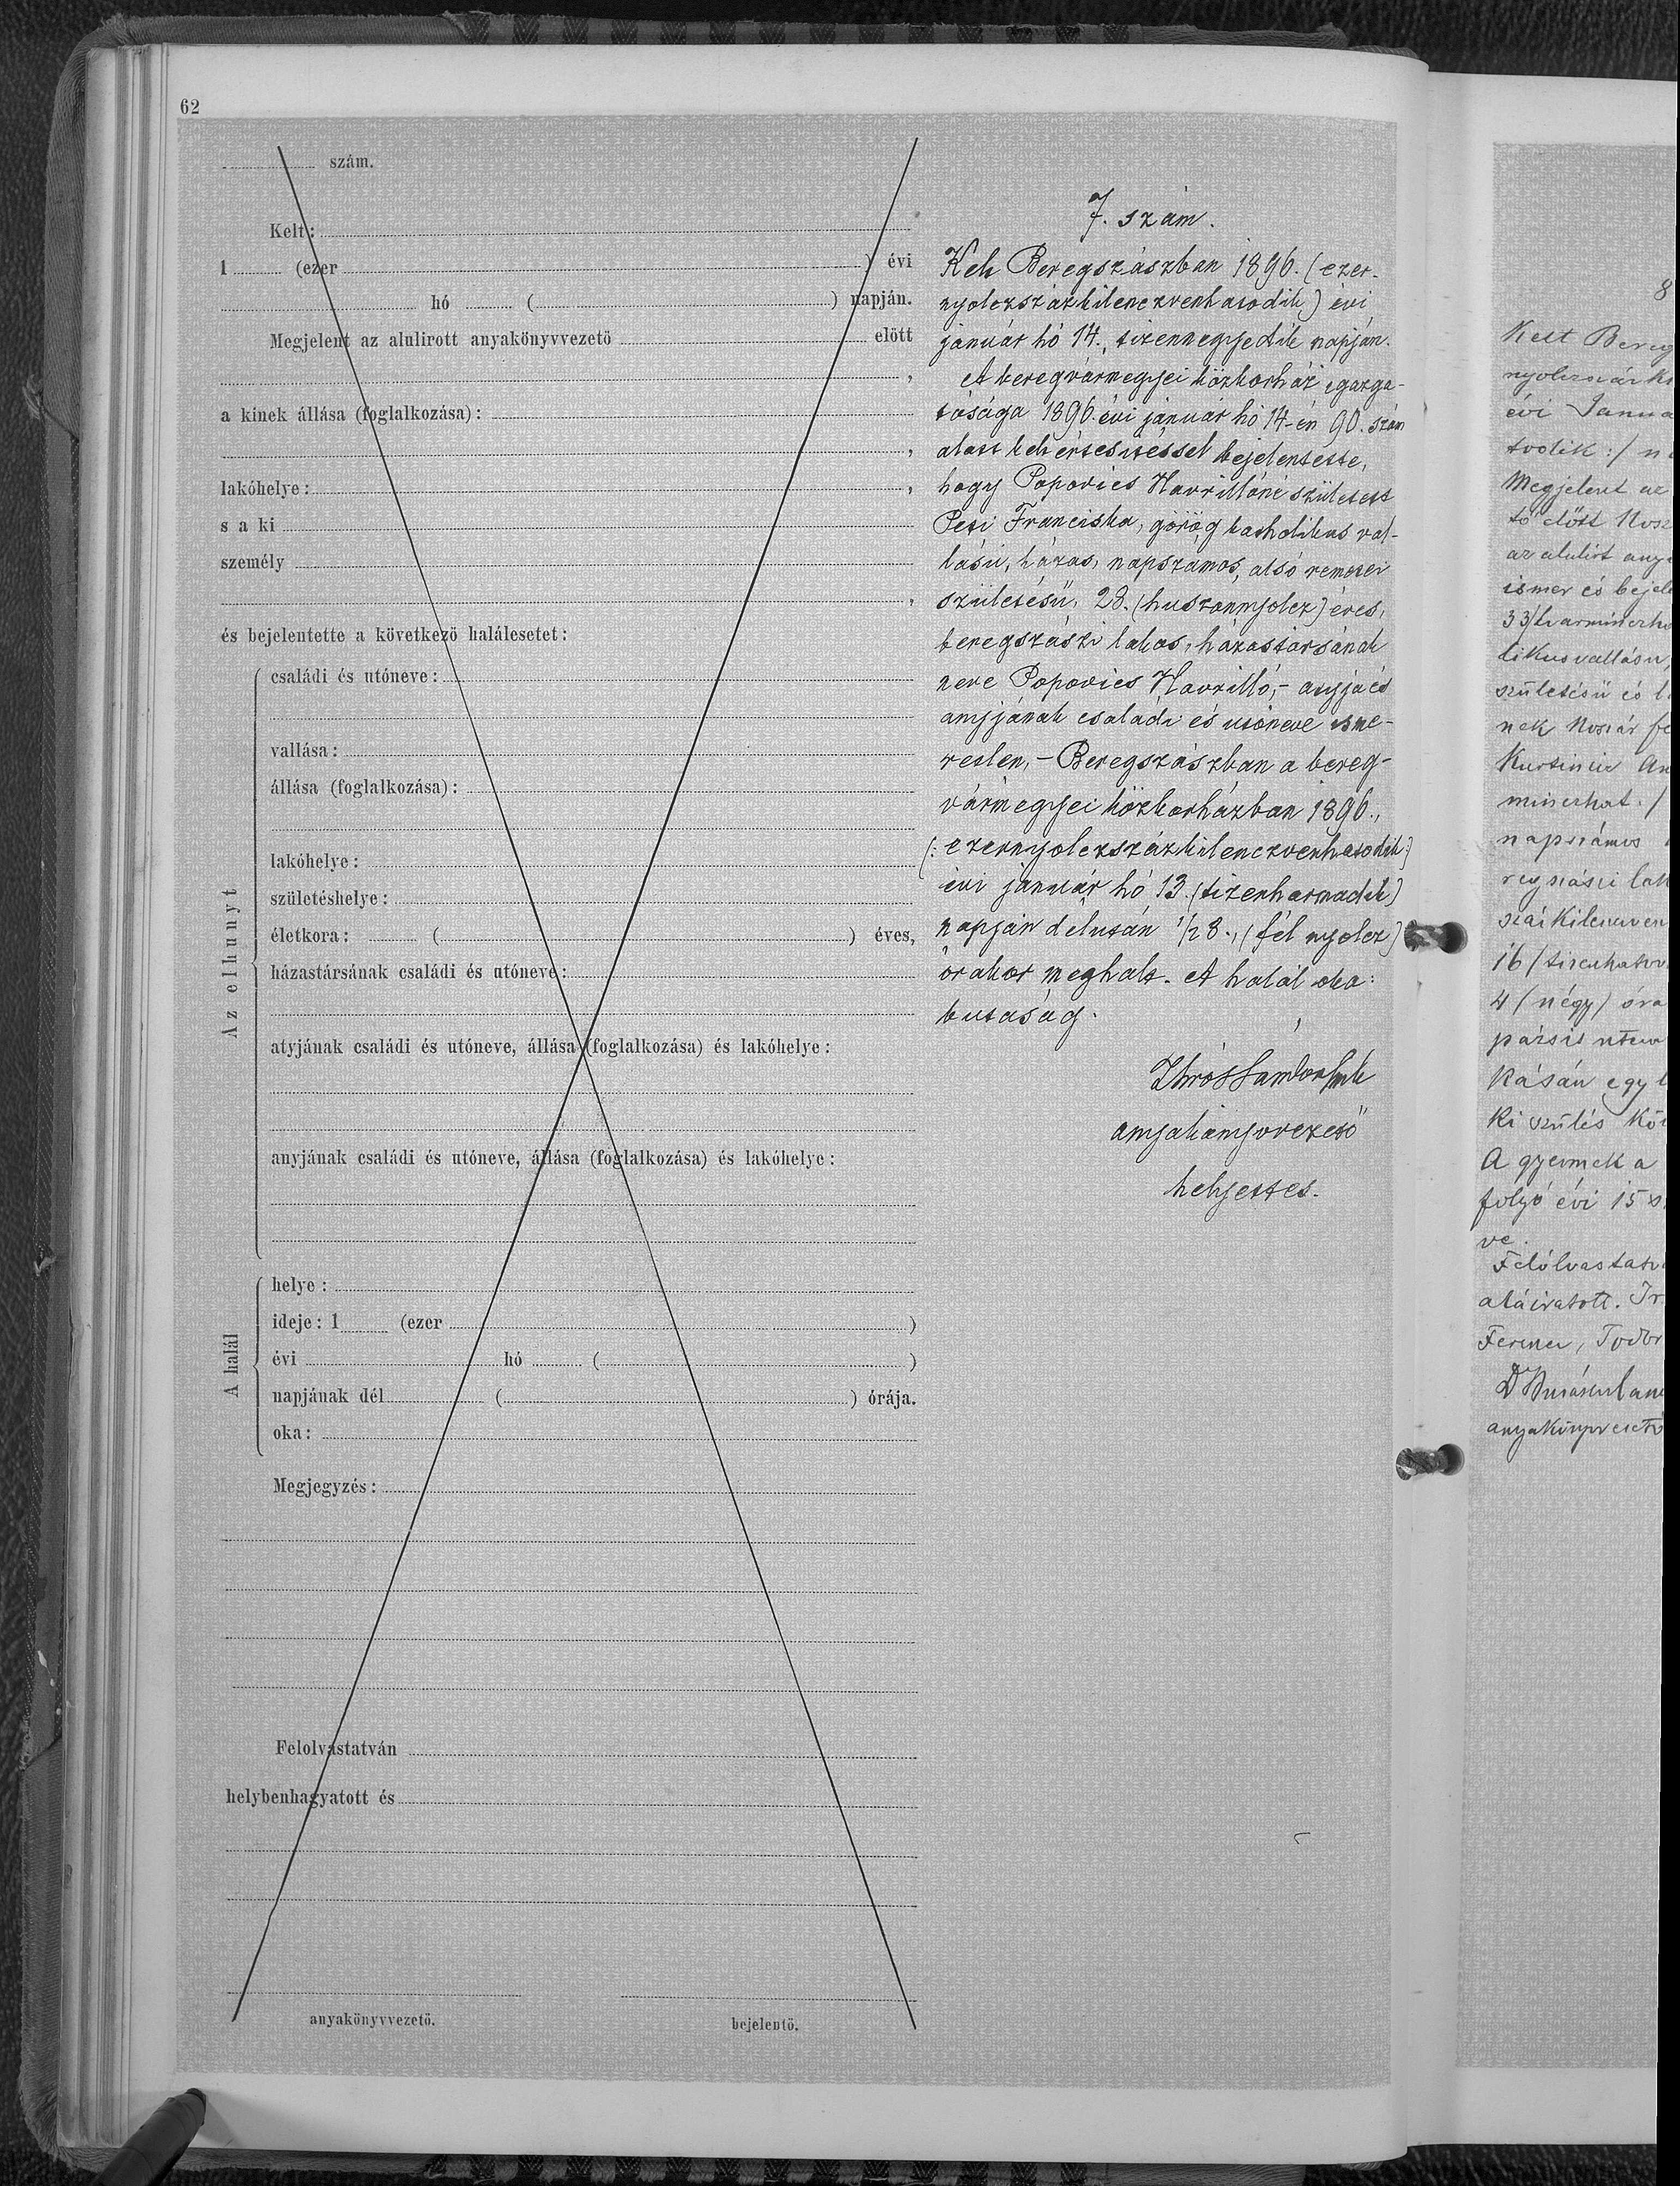 62
szám.
Kelt:
1 (ezer ) évi
hó ( ) napján.
Megjelent az alulirott anyakönyvvezető előtt
,
a kinek állása (foglalkozása):
,
lakóhelye: ,
s a ki
személy
,
és bejelentette a következő halálesetet:
Az elhunyt
családi és utóneve:
vallása:
állása (foglalkozása):
lakóhelye:
születéshelye:
életkora: ( ) éves,
házastársának családi és utóneve:
atyjának családi és utóneve, állása (foglalkozása) és lakóhelye:
anyjának családi és utóneve, állása (foglalkozása) és lakóhelye:
A halál
helye:
ideje: 1 (ezer )
évi hó ( )
napjának dél ( ) órája.
oka:
Megjegyzés:
Felolvastatván
helybenhagyatott és
anyakönyvvezető. bejelentő.
7. szám.
Kelt Beregszászban 1896. (ezer-
nyolczszázkilenczvenhatodik) évi
január hó 14., tizennegyedik napján.
A beregvármegyei közkorház igazga-
tósága 1896. évi január hó 14-én 90. szám
alatt kelt értesitéssel bejelentette,
hogy Popovics Havrillóné született
Peti Franciska, görög katholikus val-
lású, házas, napszámos, alsó remetei
születésü, 28. (huszonnyolcz) éves,
beregszászi lakos, házastársának
neve Popovics Havrilló, - atyja és
anyjának családi és utóneve isme-
retlen, - Beregszászban a bereg-
vármegyei közkorházban 1896.,
(: ezernyolczszázkilenczvenhatodik :)
évi január hó 13. (tizenharmadik)
napján délután 1/2 8., (fél nyolcz)
órakor meghalt. A halál oka:
butaság.
anyakönyvvezető
helyettes.
8
Kelt Bereg
évi Janua
Megjelent az
tő előtt
az alulirt any
ismer és bejel
likus vallásu,
születésü és l
nek
napszámos
4 (négy) óra
kásán egy
ki szülés
A gyermek a
folyó évi 15
ve.
Felólvastatv
aláiratott.